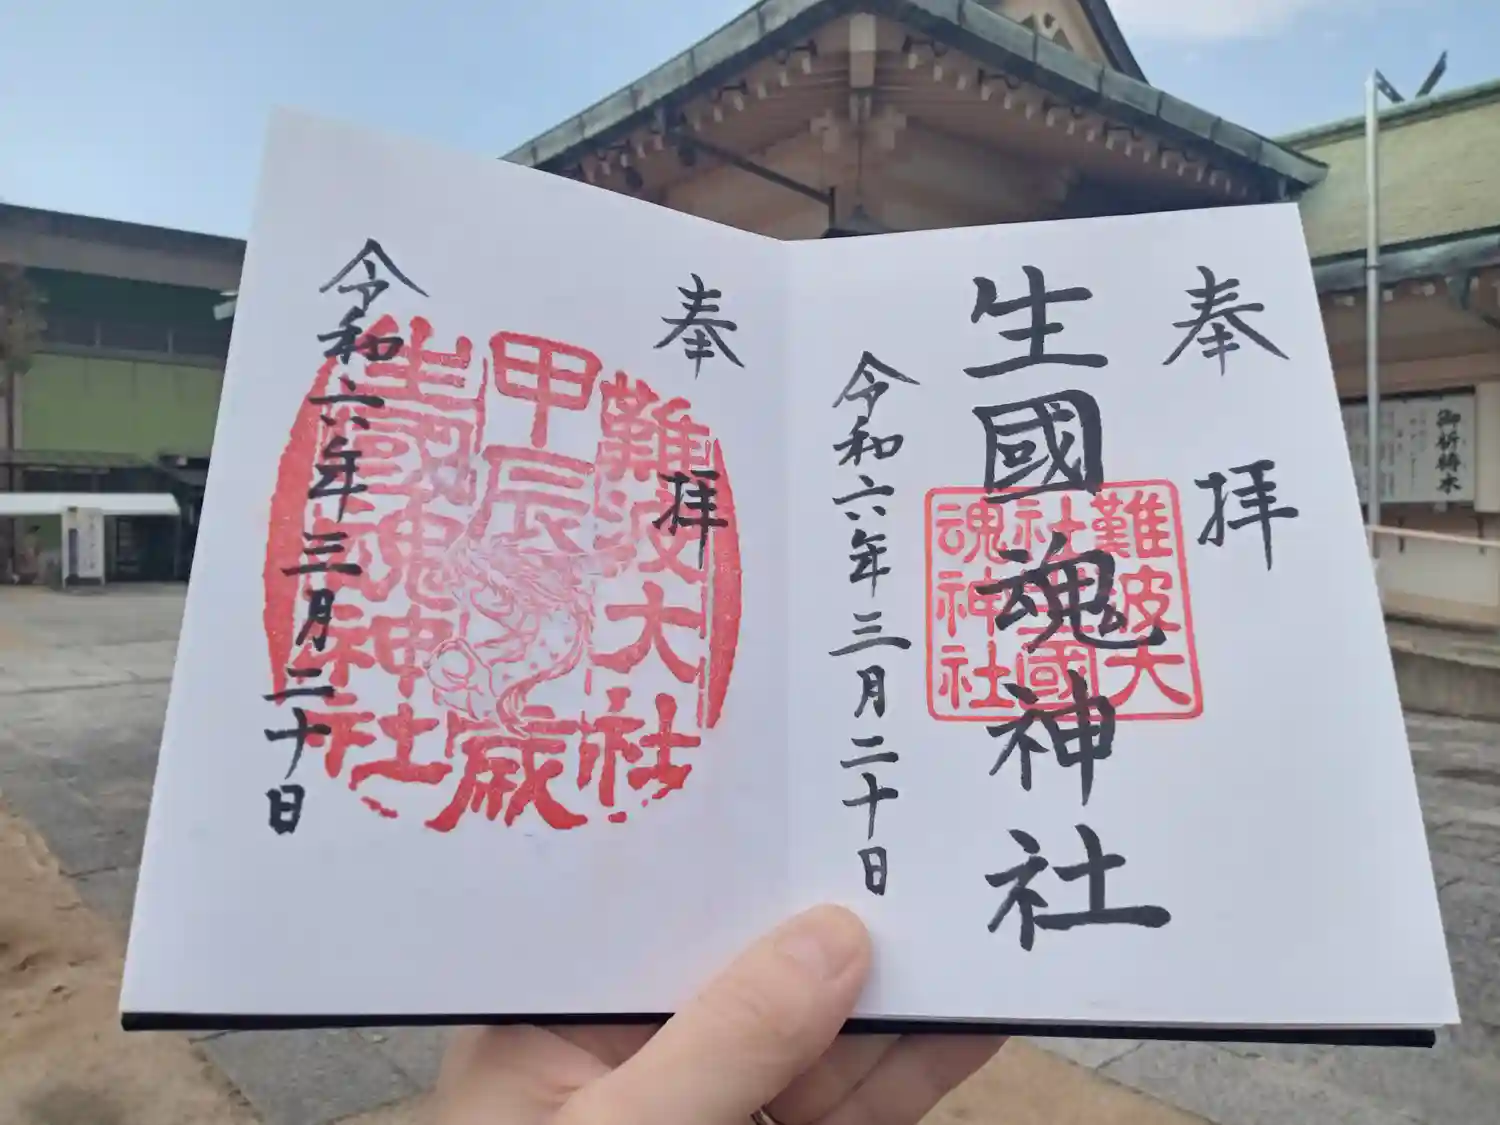 奉拝
生國魂神社
難波大
社生國
魂神社
令和六年三月二十日
奉拝
難波大社
甲辰歳
生國魂神社
令和六年三月二十日
御祈祷木